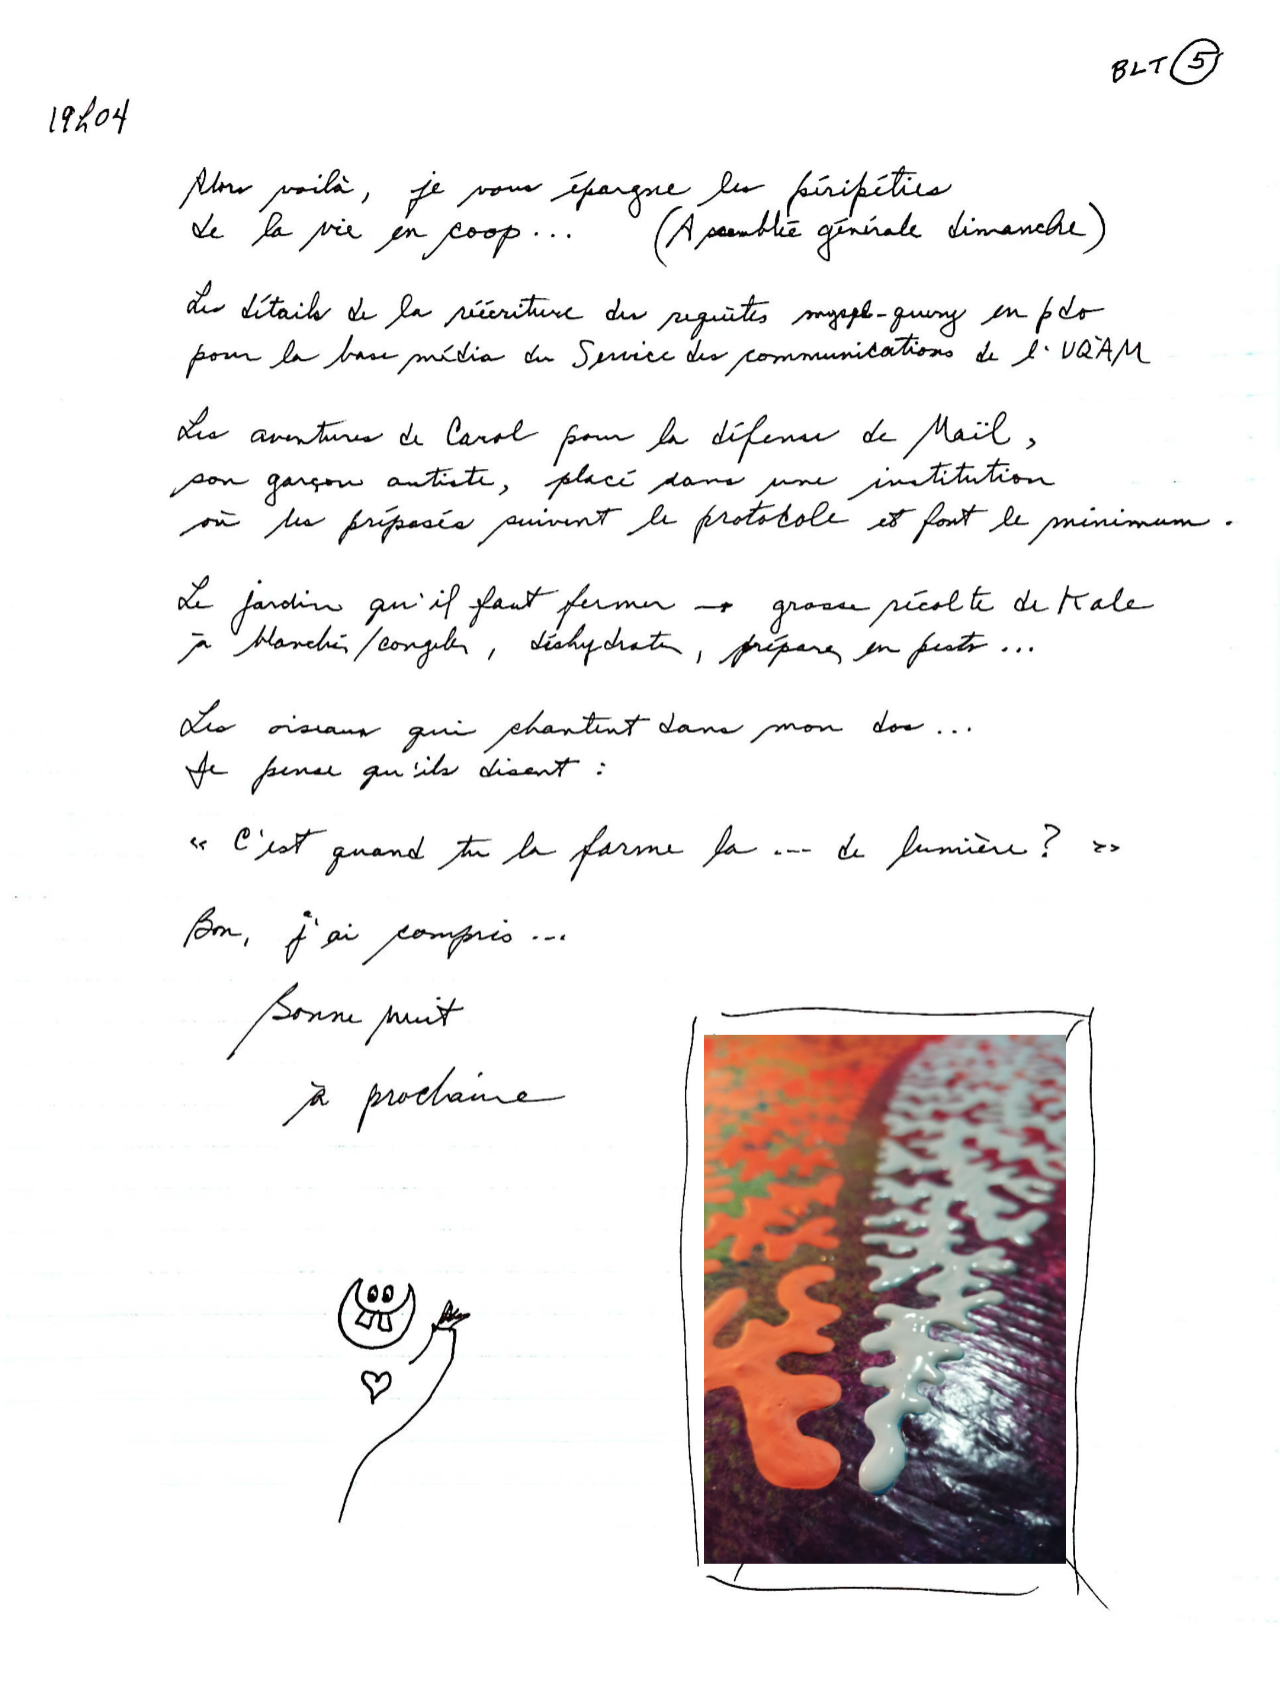 BLT 5
19h04
Alors voilà, je vous épargne les péripéties
de la vie en coop... (Assemblée générale dimanche)
Les détails de la réécriture des requêtes mysql-query en pdo
pour la base média du Service des communications de l'UQÀM
Les aventures de Carol pour la défense de Maïl,
son garçon autiste, placé dans une institution
où les préposés suivent le protocole et font le minimum.
Le jardin qu'il faut fermer → grosse récolte de Kale
à blanchir/congeler, déshydrater, préparer en pesto...
Les oiseaux qui chantent dans mon dos...
Je pense qu'ils disent :
« C'est quand tu la farme la --- de lumière ? »
Bon, j'ai compris...
Bonne nuit
à prochaine